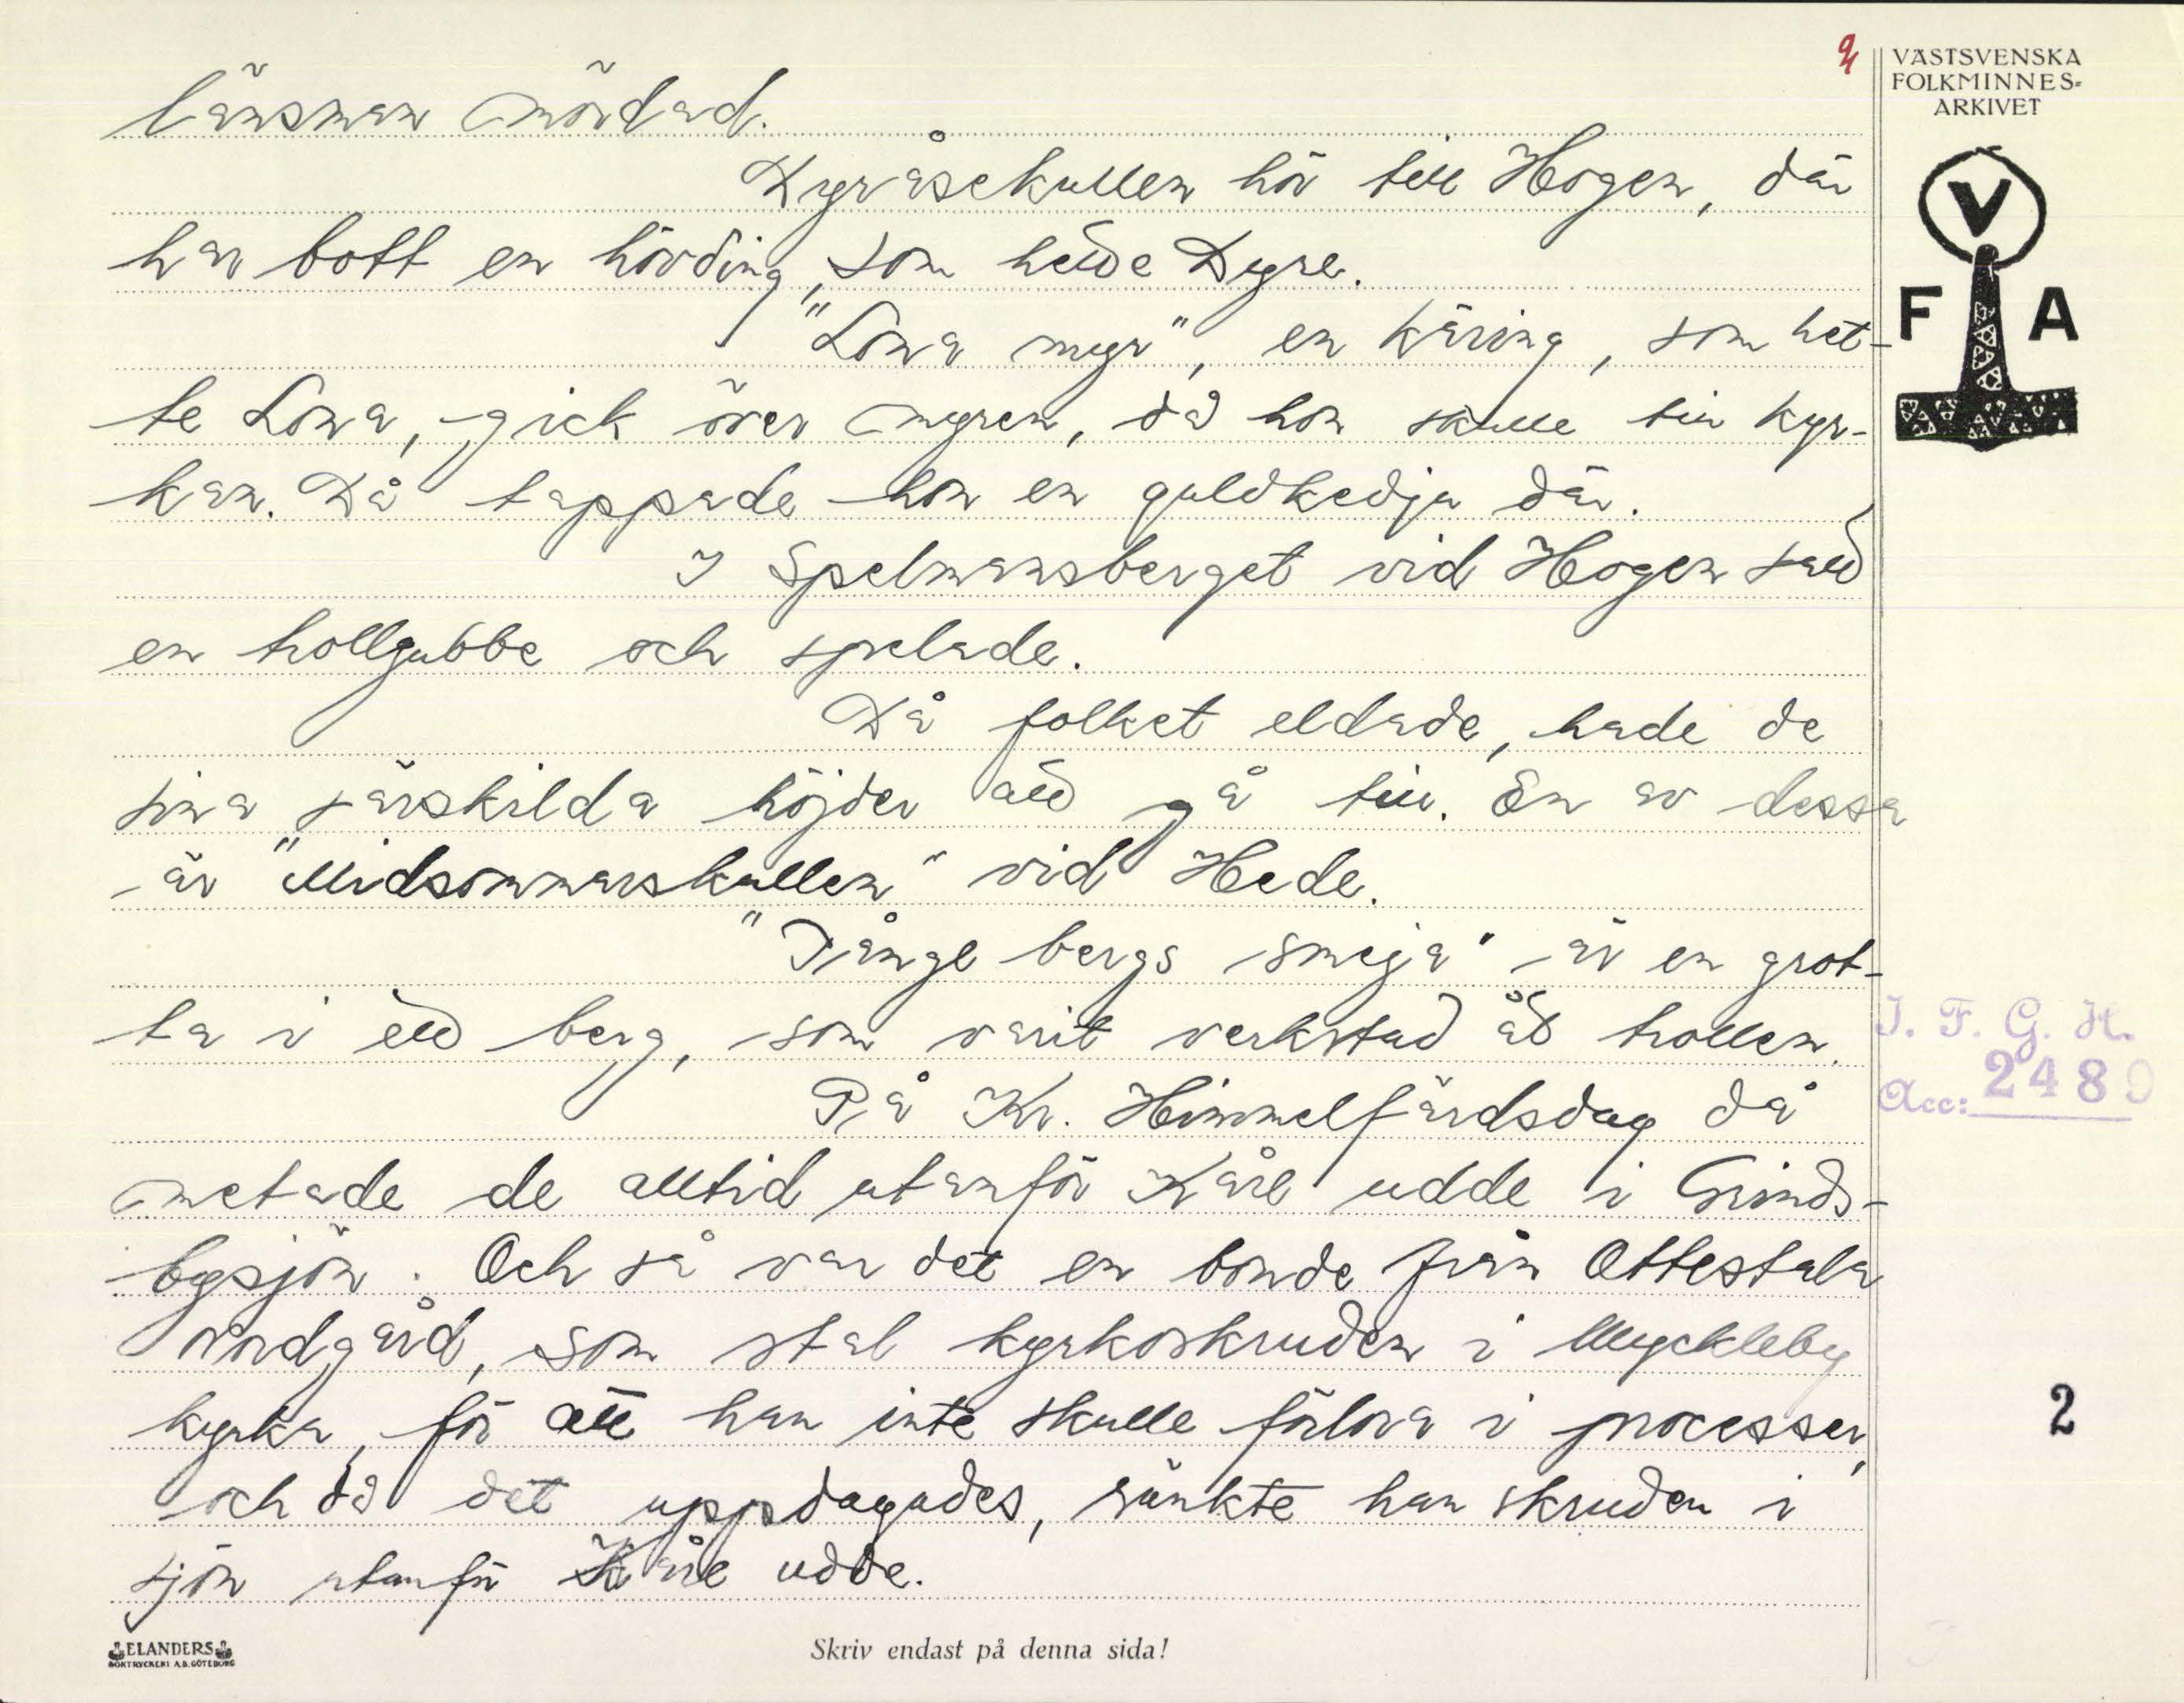 länsman mördad.
Dyråsekullen hör till Hogen, där
har bott en hövding, som hette Dyre.
"Lona myr", en käring, som het-
te Lona, gick över myren, då hon skulle till kyr-
kan. Då tappade hon en guldkedja där.
I Spelmansberget vid Hogen satt
en trollgubbe och spelade.
Då folket eldade, hade de
sina särskilda höjder att gå till. En av dessa
är "Midsommarskullen" vid Hede.
"Tånge bergs smeja" är en grot-
ta i ett berg, som varit verkstad åt trollen.
På Kr. Himmelfärdsdag då
metade de alltid utanför Kåre udde i Grinds-
bysjön. Och så var det en bonde från Ottestala
nordgård, som stal kyrkoskruden i Myckleby
kyrka, för att han inte skulle förlora i processer,
och då det uppdagades, sänkte han skruden i
sjön utanför Kåre udde.
VÄSTSVENSKA
FOLKMINNES-
ARKIVET
V
F A
I. F. G. H.
Acc: 2489
2
ELANDERS
BOKTRYCKERI A.B. GÖTEBORG
Skriv endast på denna sida!